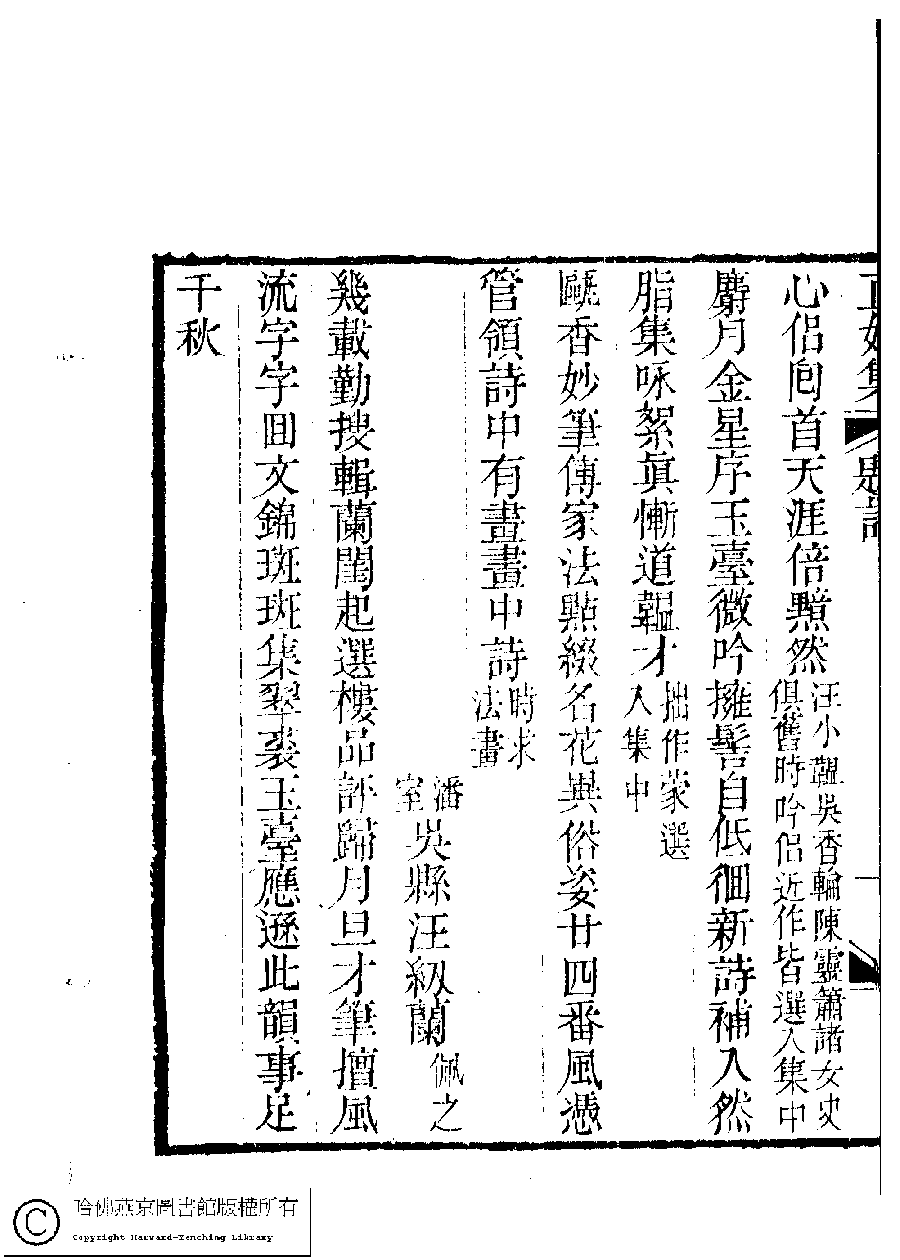 心侶囘首天涯倍黯然
汪小韞吳香輪陳靈簫諸女史
俱舊時吟侶近作皆選入集中
麝月金星序玉臺微吟擁髻自低徊新詩補入然
脂集咏絮眞慚道韞才
拙作蒙選
入集中
甌香妙筆傳家法點綴名花異俗姿廿四番風憑
管領詩中有畫畫中詩
時求
法畫
潘室吳縣汪紉蘭佩之
幾載勤搜輯蘭閨起選樓品評歸月旦才筆擅風
流字字囬文錦斑斑集翠裘玉臺應遜此韻事足
千秋
哈佛燕京圖書館版權所有
Copyright Harvard-Yenching Library